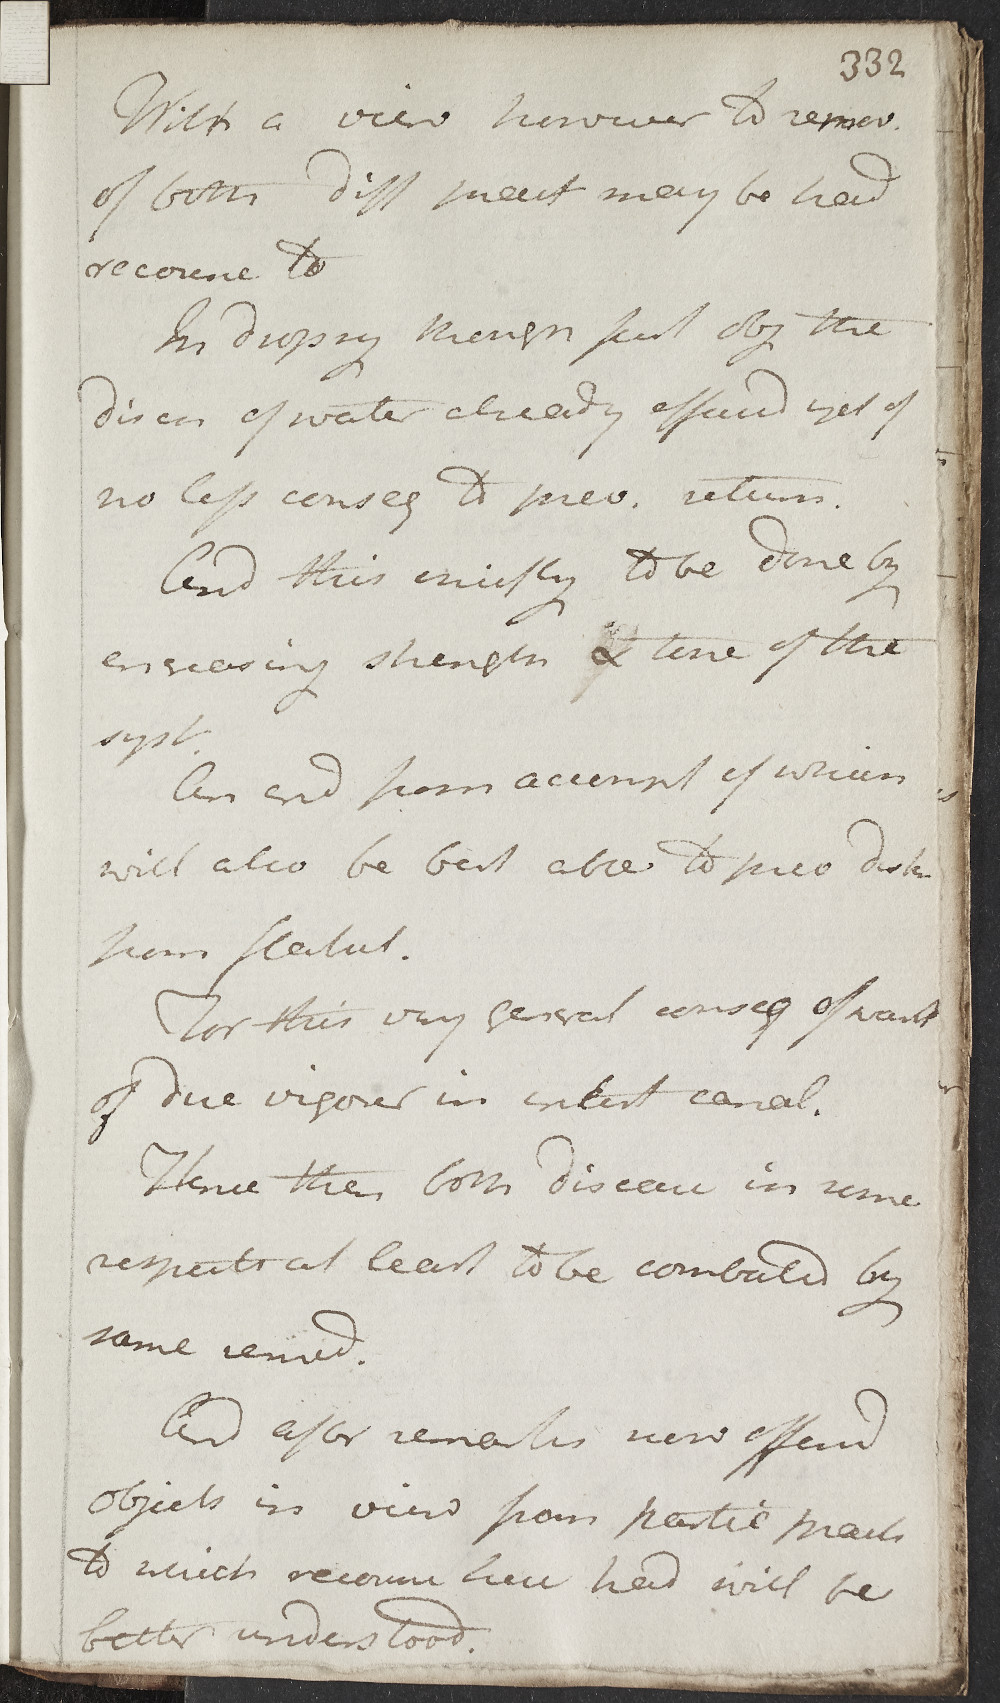 332
With a view however to remov.
of both diff pract may be had
recourse to
In dropsy though first obj the
discn of water already effused yet of
no less conseq to prev. return.
And this chiefly to be done by
encreasing strength & tone of the
syst.
An end from accompt of which
will also be best able to prev distn
from flatul.
For this very general conseq of want
of due vigour in intest canal.
Hence then both diseases in some
respects at least to be combated by
same remed.
And after remarks now offered
objects in view from partic pract
to which recourse here had will be
better understood.